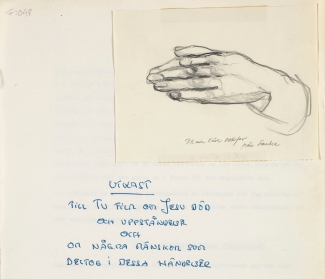 UTKAST
TILL TV FILM OM JESU DÖD
OCH UPPSTÅNDELSE
OCH
OM NÅGRA MÄNSKOR SOM
DELTOG I DESSA HÄNDELSER